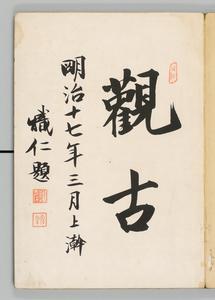 觀古
明治十七年三月上澣
熾仁題